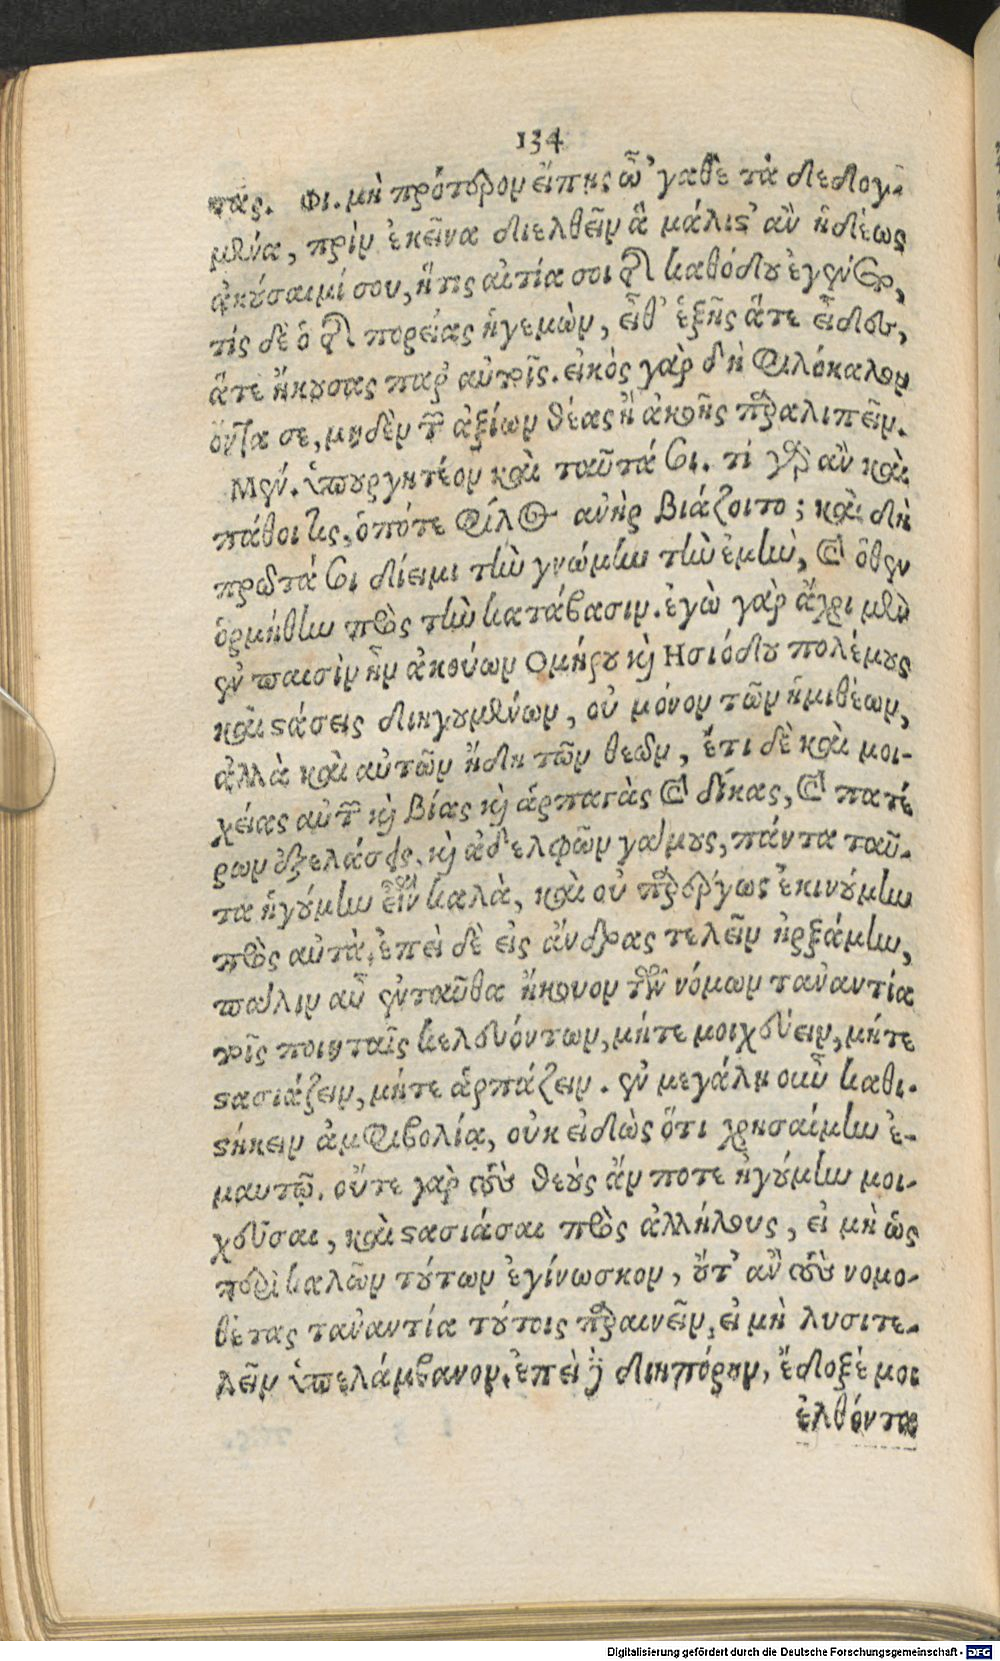 134
τας. Φι. μὴ πρότερον εἴπῃς ὦ 'γαθὲ τὰ δεδογ-
μένα, πρὶν ἐκεῖνα διελθεῖν ἃ μάλιστ' ἂν ἡδέως
ἀκούσαιμί σου, ἥτις αἰτία σοι τῆς καθόδου ἐγένετο,
τίς δὲ ὁ τῆς πορείας ἡγεμὼν, εἶθ' ἑξῆς ἅτε εἶδες,
ἅτε ἤκουσας παρ' αὐτοῖς. εἰκὸς γὰρ δὴ φιλόκαλον
ὄντα σε, μηδὲν τῶν ἀξίων θέας ἢ ἀκοῆς παραλιπεῖν.
Μεν. ὑπουργητέον καὶ ταῦτά σοι. τί γὰρ ἂν καὶ
πάθοι τις, ὁπότε φίλος ἀνὴρ βιάζοιτο; καὶ δὴ
πρῶτά σοι δίειμι τὴν γνώμην τὴν ἐμὴν, καὶ ὅθεν
ὁρμήθην πρὸς τὴν κατάβασιν. ἐγὼ γὰρ ἄχρι μὲν
ἐν παισὶν ἦν ἀκούων Ομήρου καὶ Ησιόδου πολέμους
καὶ στάσεις διηγουμένων, οὐ μόνον τῶν ἡμιθέων,
ἀλλὰ καὶ αὐτῶν ἤδη τῶν θεῶν, ἔτι δὲ καὶ μοι-
χείας αὐτῶν καὶ βίας καὶ ἁρπαγὰς καὶ δίκας, καὶ πατέ
ρων ἐξελάσεις, καὶ ἀδελφῶν γάμους, πάντα ταῦ-
τα ἡγούμην εἶναι καλὰ, καὶ οὐ παρέργως ἐκινούμην
πρὸς αὐτὰ. ἐπεὶ δὲ εἰς ἄνδρας τελεῖν ἠρξάμην,
πάλιν αὖ ἐνταῦθα ἤκουον τῶν νόμων τἀναντία
τοῖς ποιηταῖς κελευόντων, μήτε μοιχεύειν, μήτε
στασιάζειν, μήτε ἁρπάζειν. ἐν μεγάλῃ οὖν καθι-
στήκειν ἀμφιβολίᾳ, οὐκ εἰδὼς ὅτι χρησαίμην ἐ-
μαυτῷ. οὔτε γὰρ τοὺς θεοὺς ἄν ποτε ἡγούμην μοι-
χεῦσαι, καὶ στασιάσαι πρὸς ἀλλήλους, εἰ μὴ ὡς
περὶ καλῶν τούτων ἐγίνωσκον, οὔτ' ἂν τοὺς νομο-
θέτας τἀναντία τούτοις παραινεῖν, εἰ μὴ λυσιτε-
λεῖν ὑπελάμβανον. ἐπεὶ δὲ διηπόρουν, ἔδοξέ μοι
ἐλθόντα
Digitalisierung gefördert durch die Deutsche Forschungsgemeinschaft - DFG